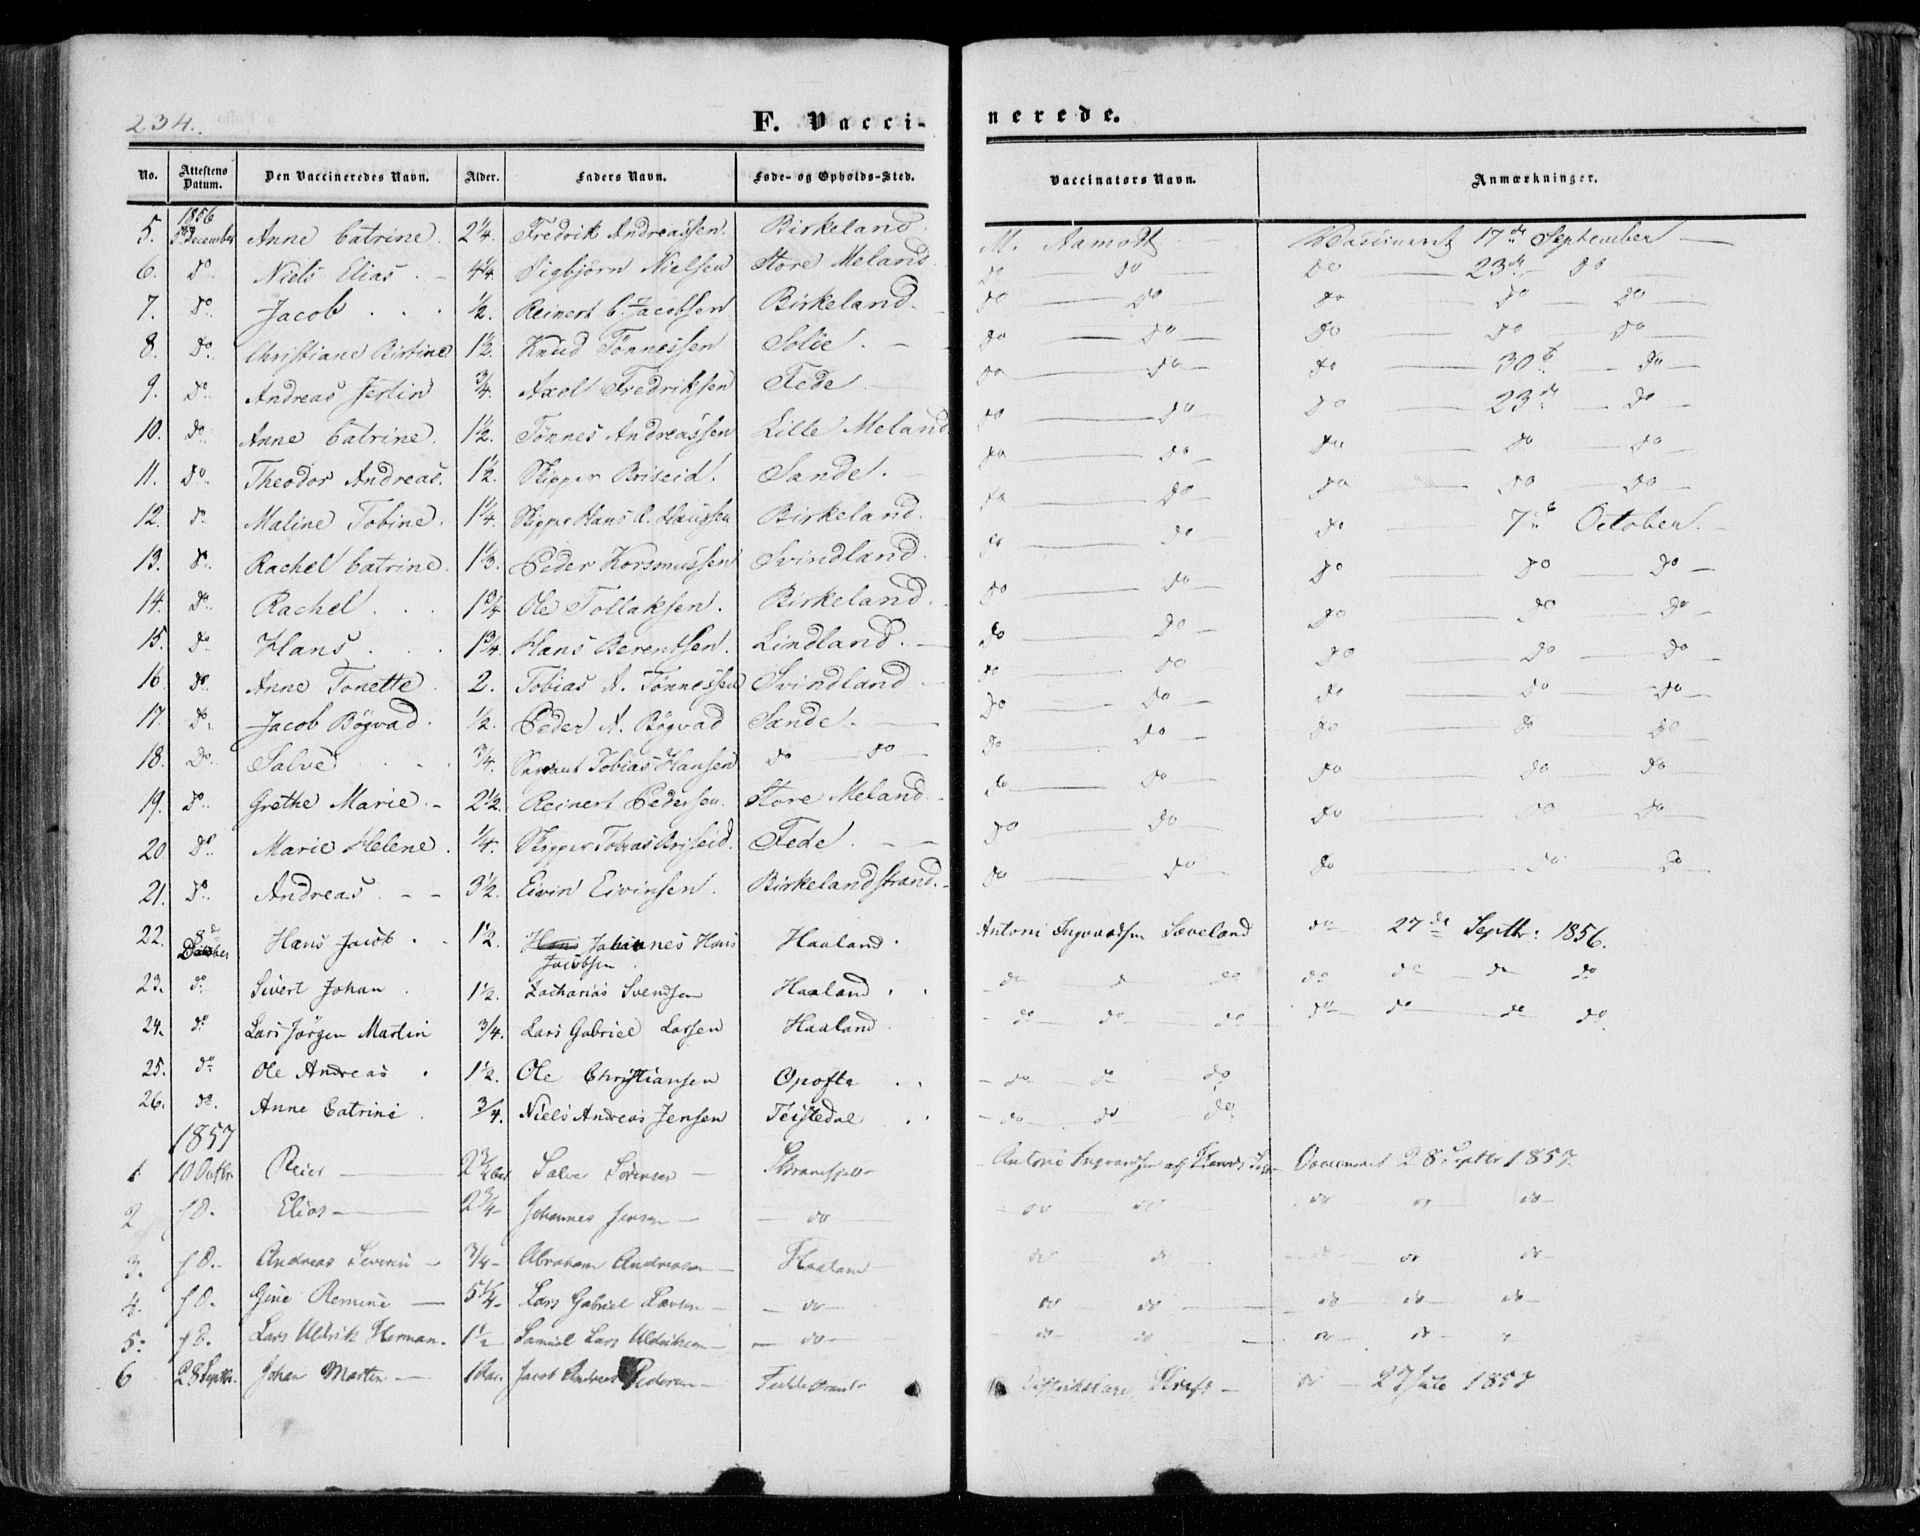 234.
F. Vacci-nerede.
No. Attestens Datum. Den Vaccineredes Navn. Alder. Faders Navn. Føde- og Opholds-Sted. Vaccinators Navn. Anmærkninger.
1856
5. 5 December Anne Catrine. 2 1/4. Fredrik Andreassen. Birkeland. M. Aamodt Vaccineret 17de September
6. do Niels Elias. 4 1/4. Sigbjørn Nielsen Store Meland. do do do 23de do
7. do Jacob 1/2. Reinert C. Jacobsen Birkeland. do do do do do
8. do Christiane Birtine 1 1/2. Knud Tønnessen Solie. do do do do do
9. do Andreas Jertin 3/4. Axel Fredriksen Fede do do do 30te do
10. do Anne Catrine. 1 1/2. Tønnes Andreassen Lille Meland do do do 23de do
11. do Theodor Andreas. 1 1/2. Skipper Briseid. Sande. do do do do do
12. do Maline Tobine. 1 1/4. Skipper Hans A. Haussen Birkeland. do do do do do
13. do Rachel Catrine. 1 1/3. Peder Korsmussen Svindland. do do do 7de October.
14. do Rachel 1 3/4. Ole Tollaksen. Birkeland. do do do do do
15. do Hans 1 3/4. Hans Berentsen. Lindland. do do do do do
16. do Anne Tonette 2. Tobias A. Tønnessen Svindland do do do do do
17. do Jacob Bøgvad. 1/2. Peder N. Bøgvad Sande. do do do do do
18. do Salve 3/4. Tobias Hansen do do do do do do do
19. do Grethe Marie. 2 1/2. Reinert Pedersen. Store Meland. do do do do do
20 do Marie Helene. 1/4. Skipper Tobias Briseid. Fede. do do do do do
21. do Andreas. 3 1/2. Eivin Eivinsen. Birkelandstrand. do do do do do
22. 8de Hans Jacob. 1 1/2. Johannes Hans Jacobsen Haaland. Antoni Ingvardsen Loveland do 27de Septbr: 1856.
23. do Sivert Johan 1 1/2. Zacharias Svendsen Haaland. do do do do do do do
24. do Lars Jørgen Martin 3/4. Lars Gabriel Larsen Haaland. do do do do do do do
25. do Ole Andreas. 1 1/2. Ole Christiansen Opofte do do do
26. do. Anne Catrine. 3/4. Niels Andreas Jensen Teistedal do do do
1857
1 10 Octbr. Reier 2 3/4 Salve Sørensen Antoni Ingvardsen af Vaccineret 28 Septbr 1857
2 do. Elias 2 3/4 Johannes Jensen do do do do do do
3. do. Andreas Severin 3/4 Abraham Andreasen Haaland do do do do do
4. do. Gine Remine 5 1/4 Lars Gabriel Larsen do do do do do do
5. do. Lars Uldrik Herman. 1 1/2 Samuel Lars Uldriksen do do do do do
6 28 Septbr. Johan Martin 1 Jacob Andreas Pedersen Distriktslæge do 27 Juli 1857